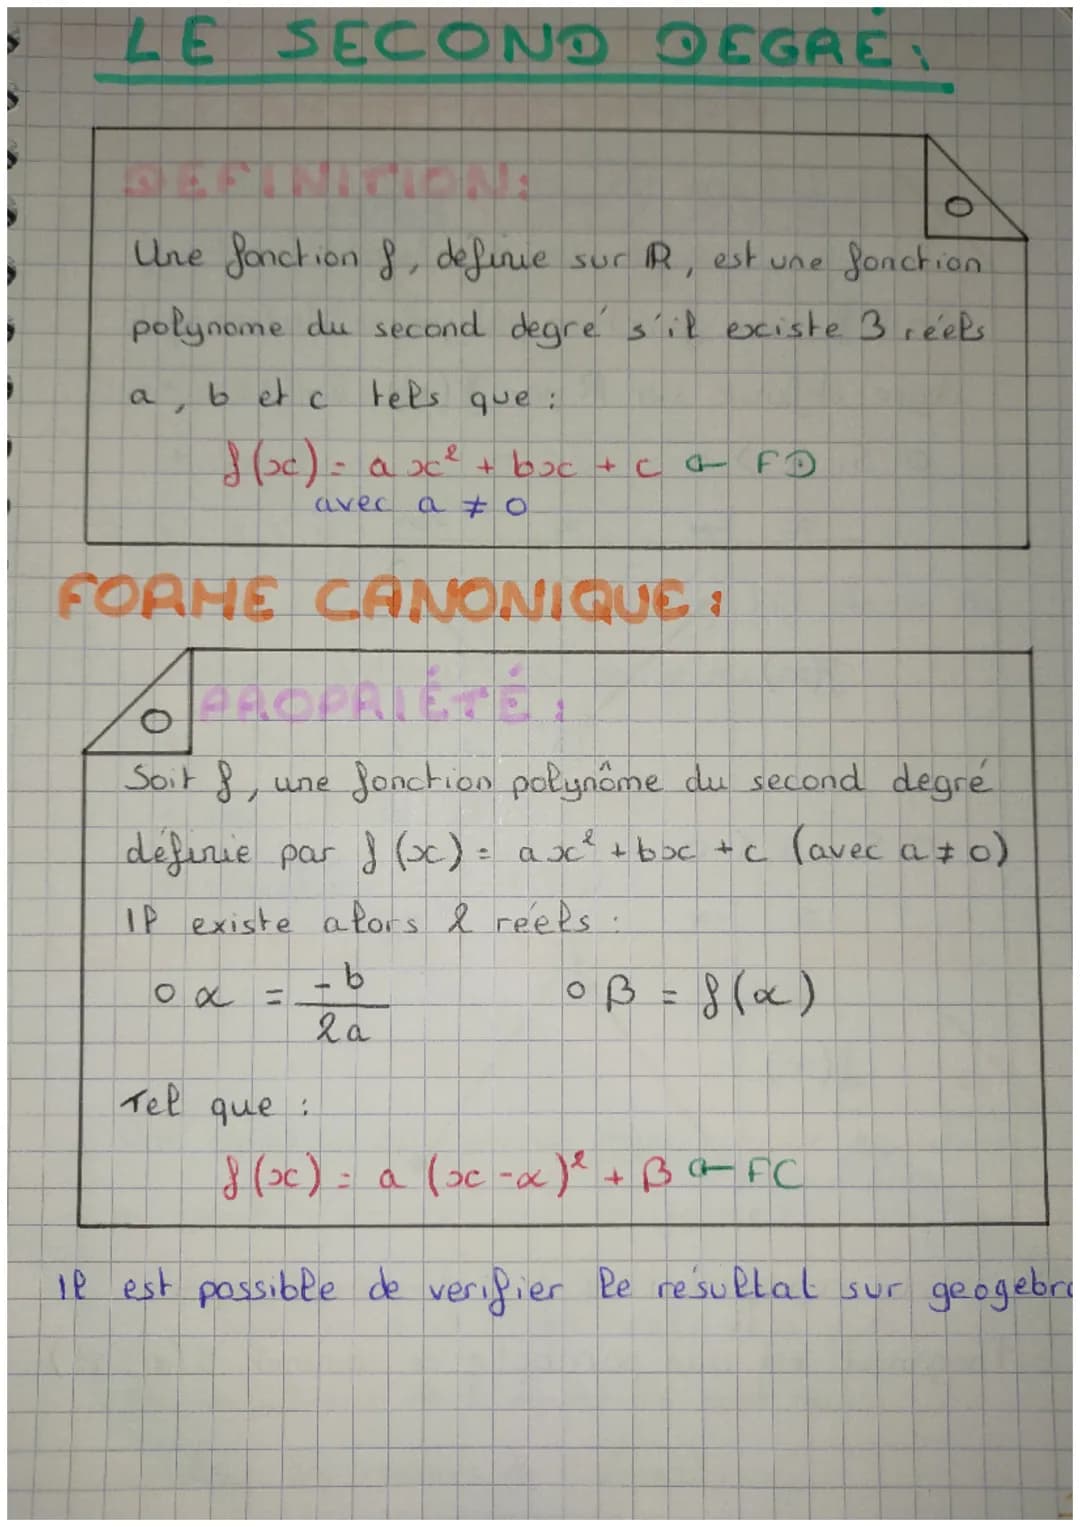 LE SECOND DEGRÉ :
DEFINITION :
Une fonction f, définie sur ℝ, est une fonction
polynome du second degré s'il existe 3 réels
a, b et c tels que :
f(x) = ax² + bx + c ← FD
avec a ≠ 0
FORME CANONIQUE :
PROPRIÉTÉ :
Soit f, une fonction polynôme du second degré
définie par f(x) = ax² + bx + c (avec a ≠ 0)
Il existe alors 2 réels :
○ α = -b/2a ○ β = f(α)
Tel que :
f(x) = a (x - α)² + β ← FC
Il est possible de verifier le résultat sur geogebra